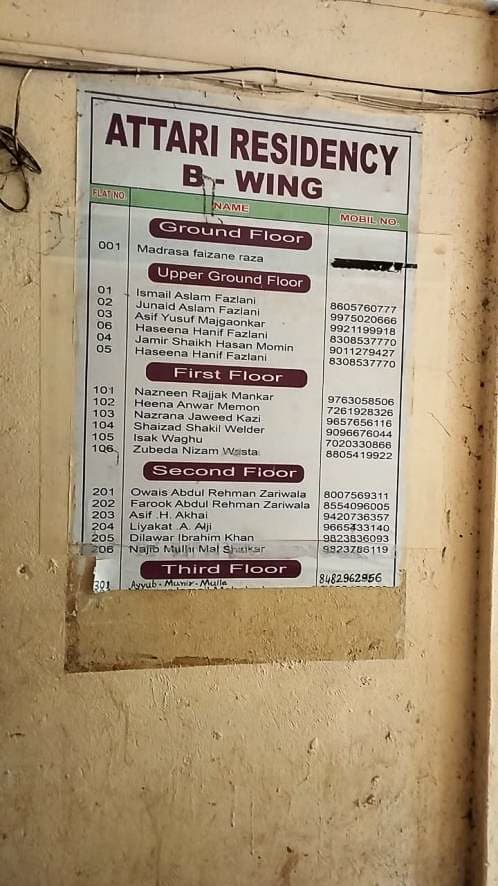 ATTARI RESIDENCY
B - WING
FLAT NO. NAME MOBIL NO.
Ground Floor
001 Madrasa faizane raza
Upper Ground Floor
01 Ismail Aslam Fazlani 8605760777
02 Junaid Aslam Fazlani 9975020666
03 Asif Yusuf Majgaonkar 9921199918
06 Haseena Hanif Fazlani 8308537770
04 Jamir Shaikh Hasan Momin 9011279427
05 Haseena Hanif Fazlani 8308537770
First Floor
101 Nazneen Rajjak Mankar 9763058506
102 Heena Anwar Memon 7261928326
103 Nazrana Jaweed Kazi 9657656116
104 Shaizad Shakil Welder 9096676044
105 Isak Waghu 7020330866
106 Zubeda Nizam Wasta 8805419922
Second Floor
201 Owais Abdul Rehman Zariwala 8007569311
202 Farook Abdul Rehman Zariwala 8554096005
203 Asif .H. Akhai 9420736357
204 Liyakat .A. Alji 9665433140
205 Dilawar Ibrahim Khan 9823836093
206 Najib Mullaji Mal Shankar
Third Floor
301 Ayyub. Munir. Mulla 8482962956